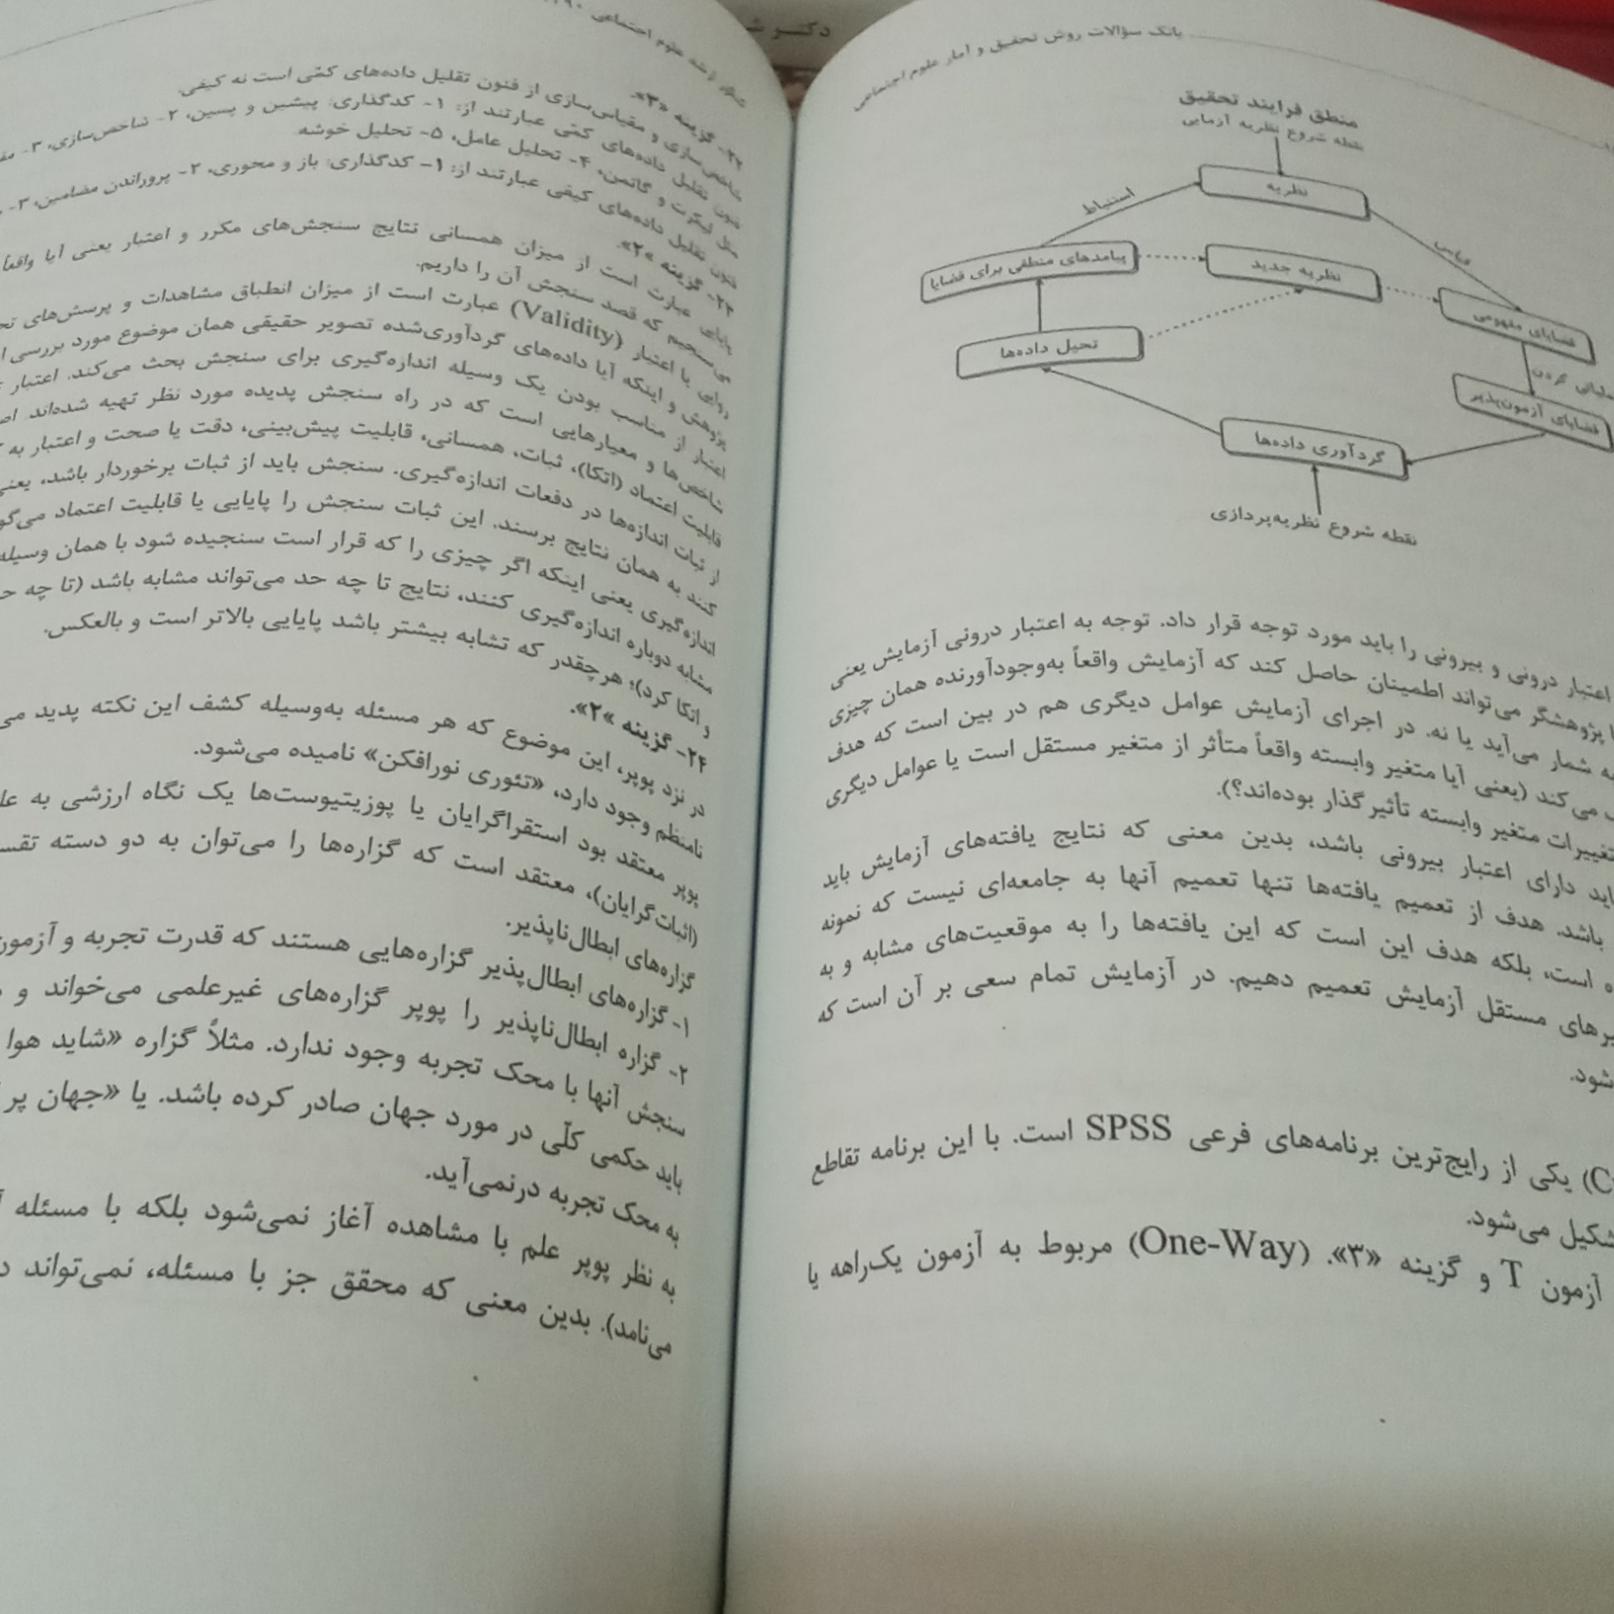 بانک سؤالات روش تحقیق و آمار علوم اجتماعی
منطق فرایند تحقیق
نقطه شروع نظریه آزمایی
نظریه
استنباط
قیاس
پیامدهای منطقی برای قضایا
نظریه جدید
قضایای مفهومی
تحیل داده‌ها
کردن
قضایای آزمون‌پذیر
گردآوری داده‌ها
نقطه شروع نظریه‌پردازی
اعتبار درونی و بیرونی را باید مورد توجه قرار داد. توجه به اعتبار درونی آزمایش یعنی
پژوهشگر می‌تواند اطمینان حاصل کند که آزمایش واقعاً به‌وجودآورنده همان چیزی
شمار می‌آید یا نه. در اجرای آزمایش عوامل دیگری هم در بین است که هدف
می‌کند (یعنی آیا متغیر وابسته واقعاً متأثر از متغیر مستقل است یا عوامل دیگری
تغییرات متغیر وابسته تأثیرگذار بوده‌اند؟).
دارای اعتبار بیرونی باشد، بدین معنی که نتایج یافته‌های آزمایش باید
باشد. هدف از تعمیم یافته‌ها تنها تعمیم آنها به جامعه‌ای نیست که نمونه
است، بلکه هدف این است که این یافته‌ها را به موقعیت‌های مشابه و به
مستقل آزمایش تعمیم دهیم. در آزمایش تمام سعی بر آن است که
شود.
یکی از رایج‌ترین برنامه‌های فرعی SPSS است. با این برنامه تقاطع
می‌شود.
آزمون T و گزینه «۳». (One-Way) مربوط به آزمون یک‌راهه یا
ارشد علوم اجتماعی
۲۲- گزینه «۳».
شاخص‌سازی و مقیاس‌سازی از فنون تقلیل داده‌های کمّی است نه کیفی.
فنون تقلیل داده‌های کمّی عبارتند از: ۱- کدگذاری: پیشین و پسین، ۲- شاخص‌سازی، ۳-
مثل لیکرت و گاتمن، ۴- تحلیل عامل، ۵- تحلیل خوشه.
فنون تقلیل داده‌های کیفی عبارتند از: ۱- کدگذاری: باز و محوری، ۲- پروراندن مضامین، ۳-
۲۳- گزینه «۲».
پایایی عبارت است از میزان همسانی نتایج سنجش‌های مکرر و اعتبار یعنی آیا واقعاً
می‌سنجیم که قصد سنجش آن را داریم.
روایی یا اعتبار (Validity) عبارت است از میزان انطباق مشاهدات و پرسش‌های
پژوهش و اینکه آیا داده‌های گردآوری‌شده تصویر حقیقی همان موضوع مورد بررسی
اعتبار از مناسب بودن یک وسیله اندازه‌گیری برای سنجش بحث می‌کند. اعتبار
شاخص‌ها و معیارهایی است که در راه سنجش پدیده مورد نظر تهیه شده‌اند
قابلیت اعتماد (اتکا)، ثبات، همسانی، قابلیت پیش‌بینی، دقت یا صحت و اعتبار به
از ثبات اندازه‌ها در دفعات اندازه‌گیری. سنجش باید از ثبات برخوردار باشد، یعنی
کنند به همان نتایج برسند. این ثبات سنجش را پایایی یا قابلیت اعتماد
اندازه‌گیری یعنی اینکه اگر چیزی را که قرار است سنجیده شود با همان وسیله
مشابه دوباره اندازه‌گیری کنند، نتایج تا چه حد می‌تواند مشابه باشد (تا چه
و اتکا کرد)؛ هرچقدر که تشابه بیشتر باشد پایایی بالاتر است و بالعکس.
۲۴- گزینه «۲».
در نزد پوپر، این موضوع که هر مسئله به‌وسیله کشف این نکته پدید
نامنظم وجود دارد، «تئوری نورافکن» نامیده می‌شود.
پوپر معتقد بود استقراگرایان یا پوزیتیوست‌ها یک نگاه ارزشی به
(اثبات‌گرایان)، معتقد است که گزاره‌ها را می‌توان به دو دسته
گزاره‌های ابطال‌ناپذیر.
۱- گزاره‌های ابطال‌پذیر گزاره‌هایی هستند که قدرت تجربه و آزمون
۲- گزاره ابطال‌ناپذیر را پوپر گزاره‌های غیرعلمی می‌خواند و
سنجش آنها با محک تجربه وجود ندارد. مثلاً گزاره «شاید هوا
باید حکمی کلّی در مورد جهان صادر کرده باشد. یا «جهان پر
به محک تجربه درنمی‌آید.
به نظر پوپر علم با مشاهده آغاز نمی‌شود بلکه با مسئله
می‌نامد). بدین معنی که محقق جز با مسئله، نمی‌تواند